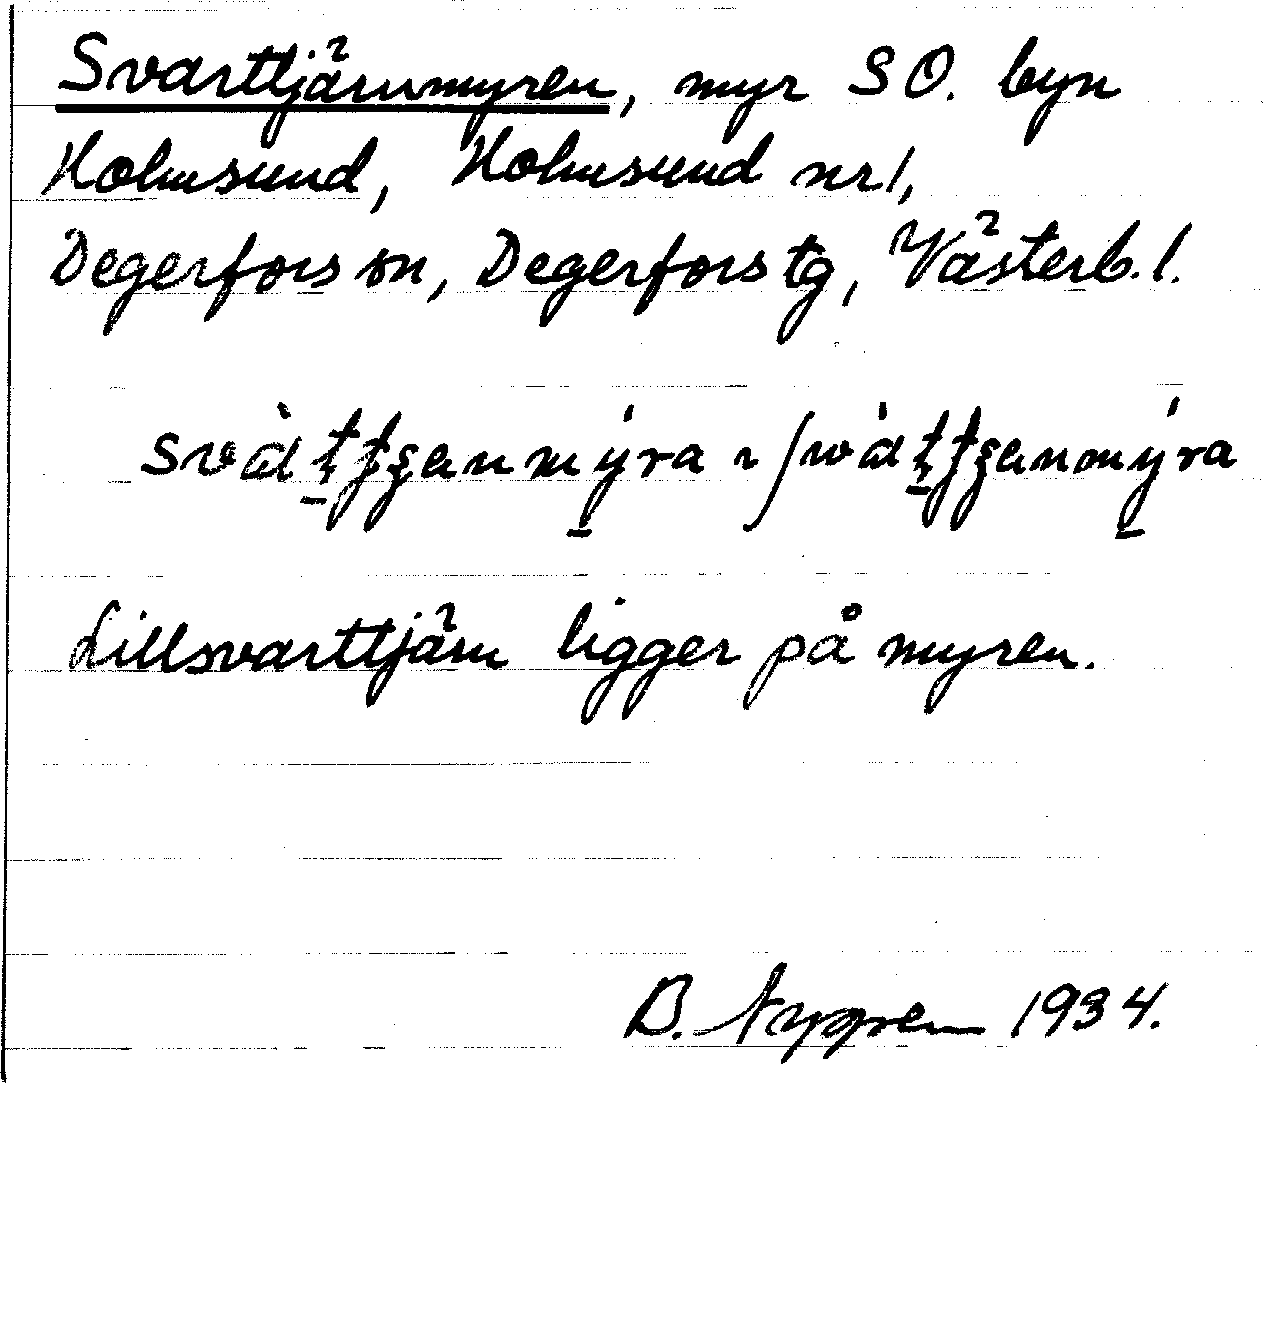 Svarttjärnmyren, myr SO. byn
Holmsund, Holmsund nr 1,
Degerfors sn, Degerfors tg, Västerb. l.
Lillsvarttjärn ligger på myren.
B. Nygren 1934.